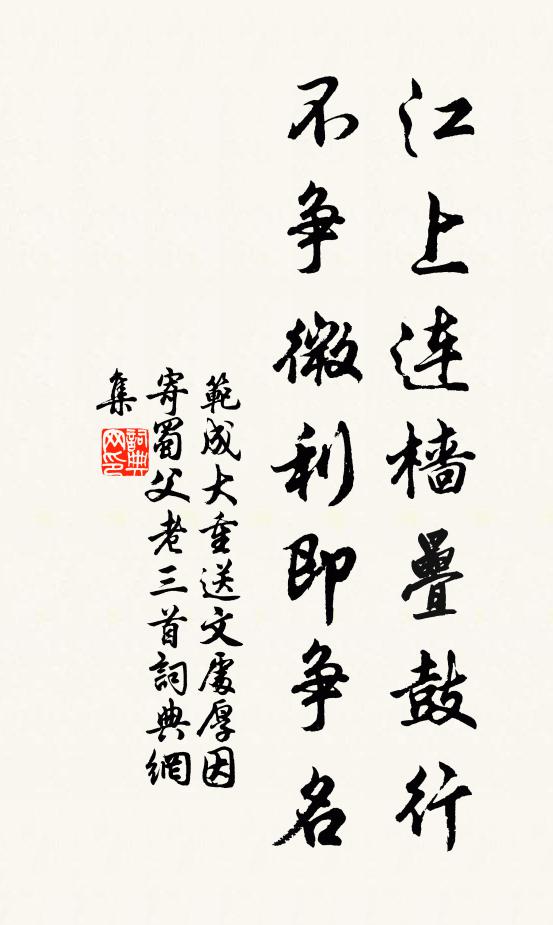 江上連檣疊鼓行
不爭微利即爭名
範成大重送文處厚因
寄蜀父老三首詞典網
集
詞典網印